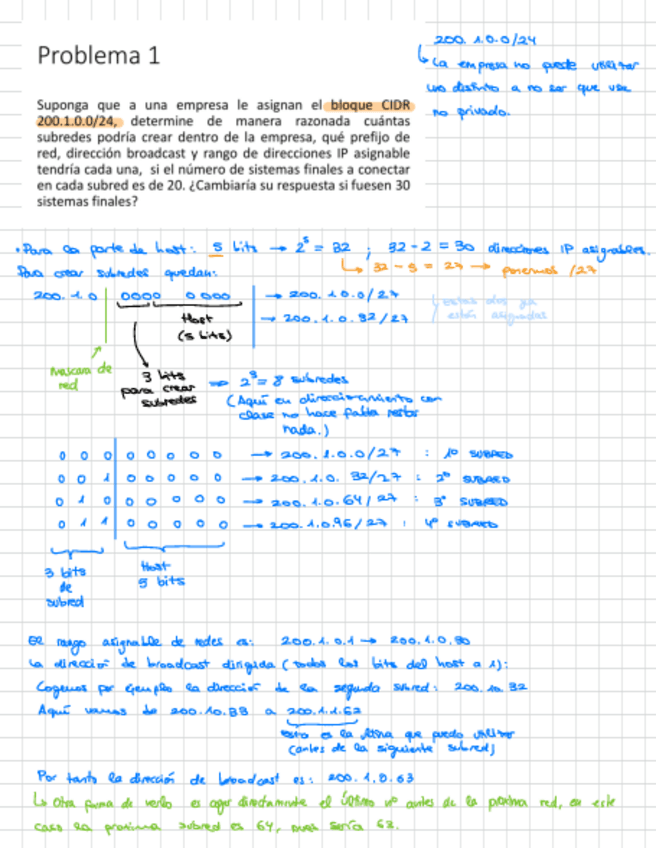 Problema 1
200. 1.0.0/24
La empresa no puede utilizar
uno distinto a no ser que use
no privado.
Suponga que a una empresa le asignan el bloque CIDR
200.1.0.0/24, determine de manera razonada cuántas
subredes podría crear dentro de la empresa, qué prefijo de
red, dirección broadcast y rango de direcciones IP asignable
tendría cada una, si el número de sistemas finales a conectar
en cada subred es de 20. ¿Cambiaría su respuesta si fuesen 30
sistemas finales?
• Para la parte de host: 5 bits → 2^5 = 32 ; 32 - 2 = 30 direcciones IP asignables.
Para crear subredes quedan:
32 - 5 = 27 → ponemos /27
200. 1.0 | 0000 0000 → 200. 1.0.0/27
→ 200. 1.0.32/27
estas dos ya
están asignadas
Host
(5 bits)
máscara de
red
3 bits
para crear
subredes
⇒ 2^3 = 8 subredes
(Aquí en direccionamiento con
clase no hace falta restar
nada.)
0 0 0 | 0 0 0 0 0 → 200. 1.0.0/27 : 1º SUBRED
0 0 1 | 0 0 0 0 0 → 200. 1.0. 32/27 : 2º SUBRED
0 1 0 | 0 0 0 0 0 → 200. 1.0.64/27 : 3º SUBRED
0 1 1 | 0 0 0 0 0 → 200. 1.0.96/27 : 4º SUBRED
3 bits
de
subred
Host
5 bits
El rango asignable de redes es: 200.1.0.1 → 200.1.0.30
La dirección de broadcast dirigida (todos los bits del host a 1):
Cogemos por ejemplo la dirección de la segunda subred: 200. 10. 32
Aquí vamos de 200.10.33 a 200.1.1.62
esto es la última que puedo utilizar
(antes de la siguiente subred)
Por tanto la dirección de broadcast es: 200. 1.0.63
Otra forma de verlo es coger directamente el último nº antes de la próxima red, en este
caso la próxima subred es 64, pues sería 63.